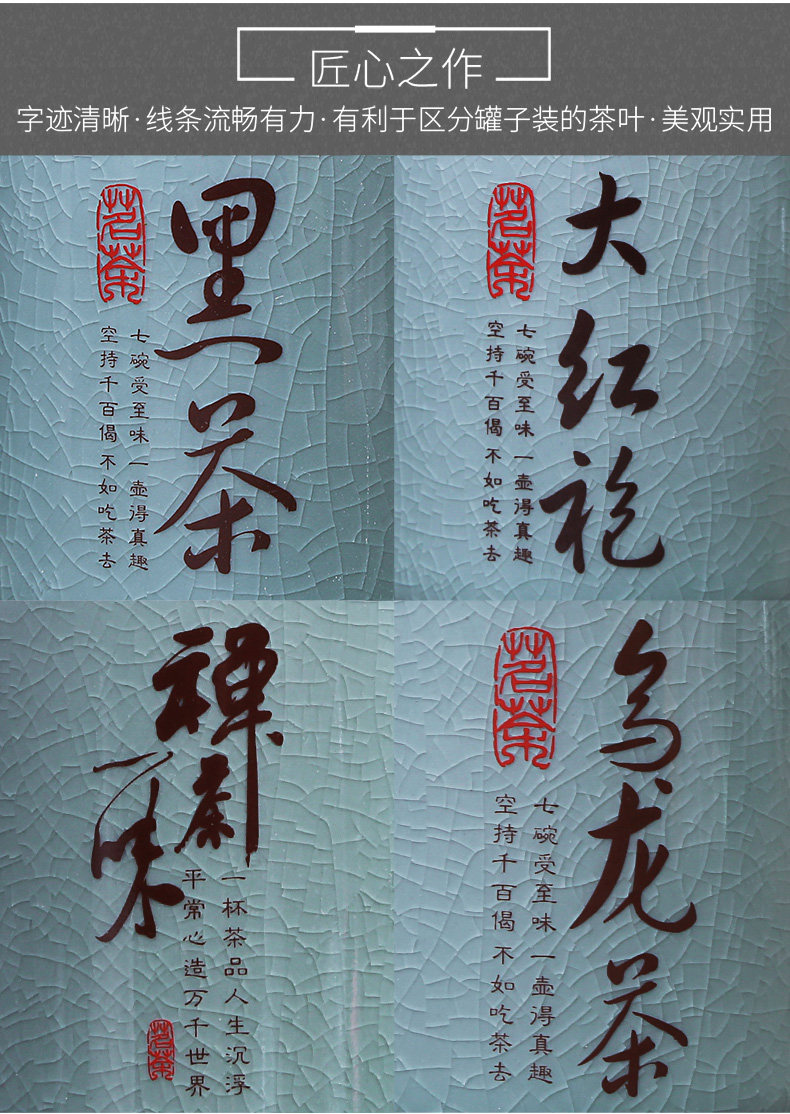 匠心之作
字迹清晰·线条流畅有力·有利于区分罐子装的茶叶·美观实用
黑茶
茗茶
七碗受至味一壶得真趣
空持千百偈不如吃茶去
大红袍
茗茶
七碗受至味一壶得真趣
空持千百偈不如吃茶去
禅茶
一味
一杯茶品人生沉浮
平常心造万千世界
茗茶
乌龙茶
茗茶
七碗受至味一壶得真趣
空持千百偈不如吃茶去